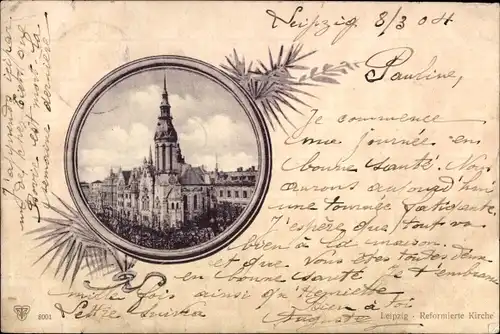 Leipzig 8/3 04
Pauline,
Je commence
ma journée en
bonne santé Nous
aurons aujourd'hui
une tournée fatigante
J'espère que tout va
bien à la maison
et que vous êtes toutes deux
en bonne santé Je t'embrasse
mille fois ainsi qu'Henriette
Bien à toi
Auguste
Lettre suivra
est mort la
semaine dernière
8001
Leipzig - Reformierte Kirche